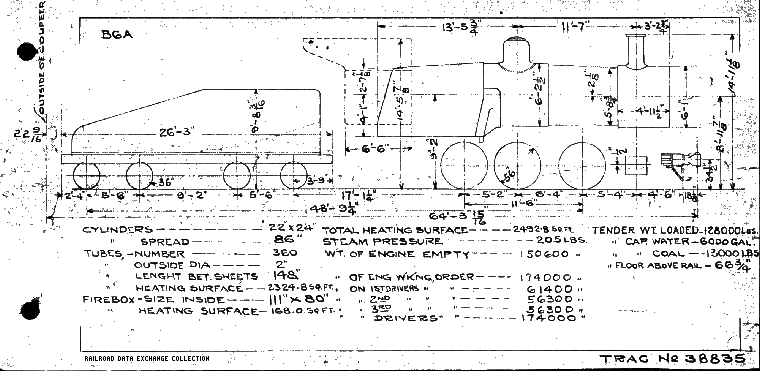 B6A
13'-5 3/4"
11'-7"
OUTSIDE OF COUPLER
26'-3"
6'-6"
36"
2'-4"
5'-6"
9'-2"
5'-6"
3'-9"
17'-1 1/4"
5'-2"
6'-4"
5'-4"
4'-6"
48'-9 3/4"
11'-6"
64'-3 15/16"
CYLINDERS 22"x24"
" SPREAD 86"
TUBES,-NUMBER 360
" OUTSIDE DIA 2"
" LENGHT BET. SHEETS 148"
" HEATING SURFACE 2324.8 SQ.FT.
FIREBOX-SIZE INSIDE 111"x80"
" HEATING SURFACE 168.0 SQ.FT.
TOTAL HEATING SURFACE 2492.8 SQ.FT.
STEAM PRESSURE 205 LBS.
WT. OF ENGINE EMPTY 150600 "
" OF ENG WKNG, ORDER 174000 "
" ON 1ST DRIVERS " " 61400 "
" " 2ND " " " 56300 "
" " 3RD " " " 56300 "
" " DRIVERS " " 174000 "
TENDER WT. LOADED-128000 LBS.
" CAP. WATER-6000 GAL.
" " COAL-13000 LBS
" FLOOR ABOVE RAIL-66 3/4"
RAILROAD DATA EXCHANGE COLLECTION
TRAC No 38835